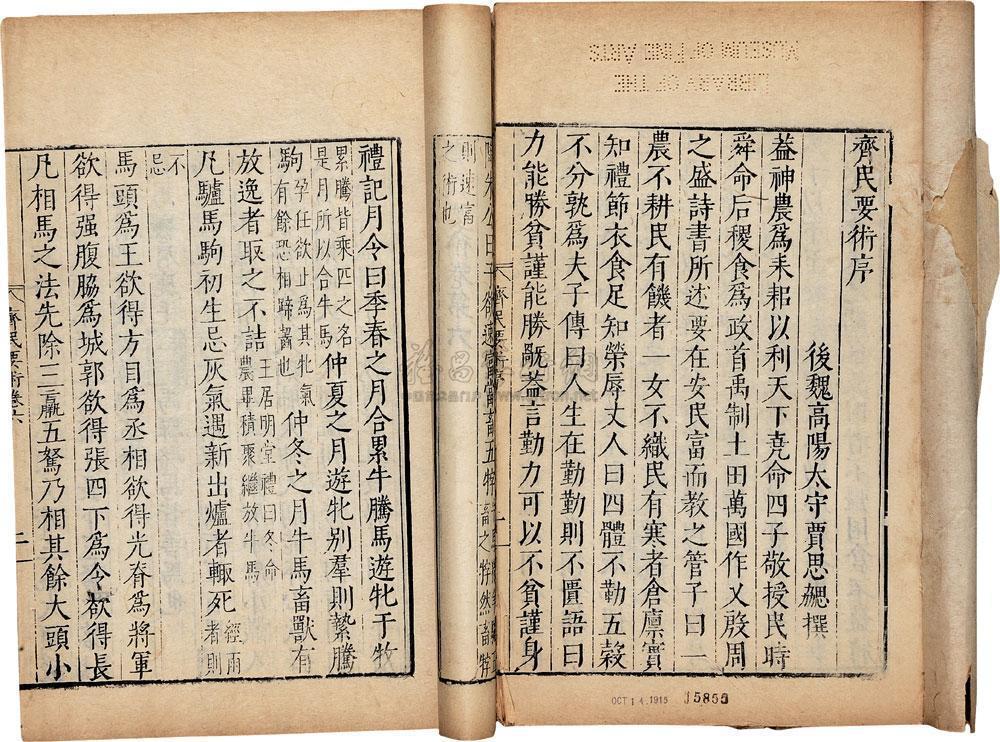 齊民要術序
後魏高陽太守賈思勰撰
葢神農爲耒耜以利天下堯命四子敬授民時
舜命后稷食爲政首禹制土田萬國作乂殷周
之盛詩書所述要在安民富而教之管子曰一
農不耕民有饑者一女不織民有寒者倉廩實
知禮節衣食足知榮辱丈人曰四體不勤五穀
不分孰爲夫子傳曰人生在勤勤則不匱語曰
力能勝貧謹能勝禍葢言勤力可以不貧謹身
齊民要術序
則速富
之術也
禮記月令曰季春之月合累牛騰馬遊牝于牧
累騰皆乘匹之名
是月所以合牛馬
仲夏之月遊牝別羣則縶騰
駒
孕任欲止爲其牝氣
有餘恐相蹄齧也
仲冬之月牛馬畜獸有
放逸者取之不詰
王居明堂禮曰冬命
農畢積聚繼放牛馬
凡驢馬駒初生忌灰氣遇新出爐者輒死
經雨
者則
不
忌
馬頭爲王欲得方目爲丞相欲得光脊爲將軍
欲得强腹脇爲城郭欲得張四下爲令欲得長
凡相馬之法先除三羸五駑乃相其餘大頭小
齊民要術卷六
二
LIBRARY OF THE
MUSEUM OF FINE ARTS
OCT 14 1915
15855